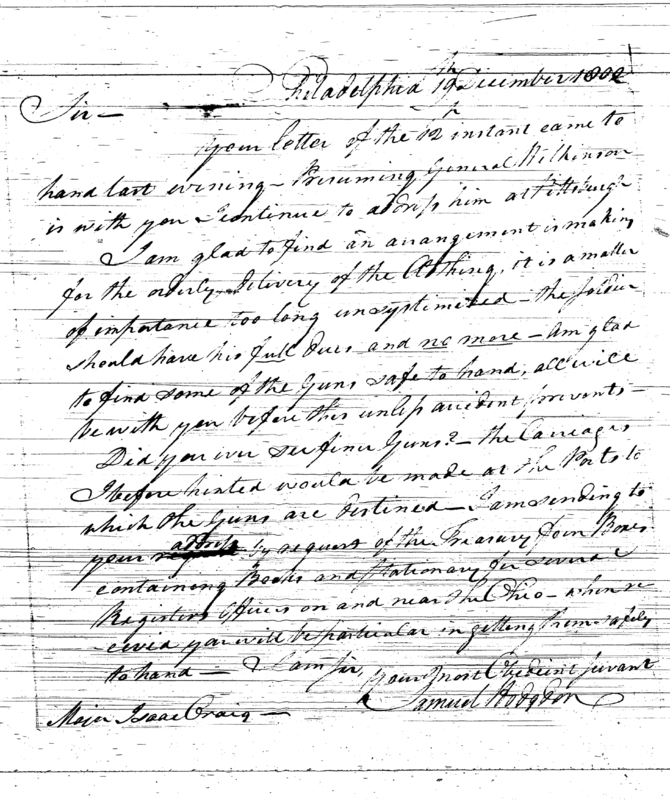 Philadelphia 19th December 1800
Sir —
your letter of the 12 instant came to
hand last evening — Presuming General Wilkinson
is with you I continue to address him at Pittsburgh
I am glad to find an arrangement is making
for the orderly delivery of the Clothing, it is a matter
of importance too long unsystimized — the soldier
should have his full dues and no more — Am glad
to find some of the Guns safe to hand, all will
be with you before this unless accident prevents —
Did you ever see finer Guns? — the Carriages
I before hinted would be made at the Posts to
which the Guns are destined — I am sending to
your address by request of the Treasury four Boxes
containing Books and Stationary for several
Registers Offices on and near the Ohio — when re
ceived you will be particular in getting them safely
to hand — I am Sir,
your most Obedient Servant
Samuel Hodgdon
Major Isaac Craig —